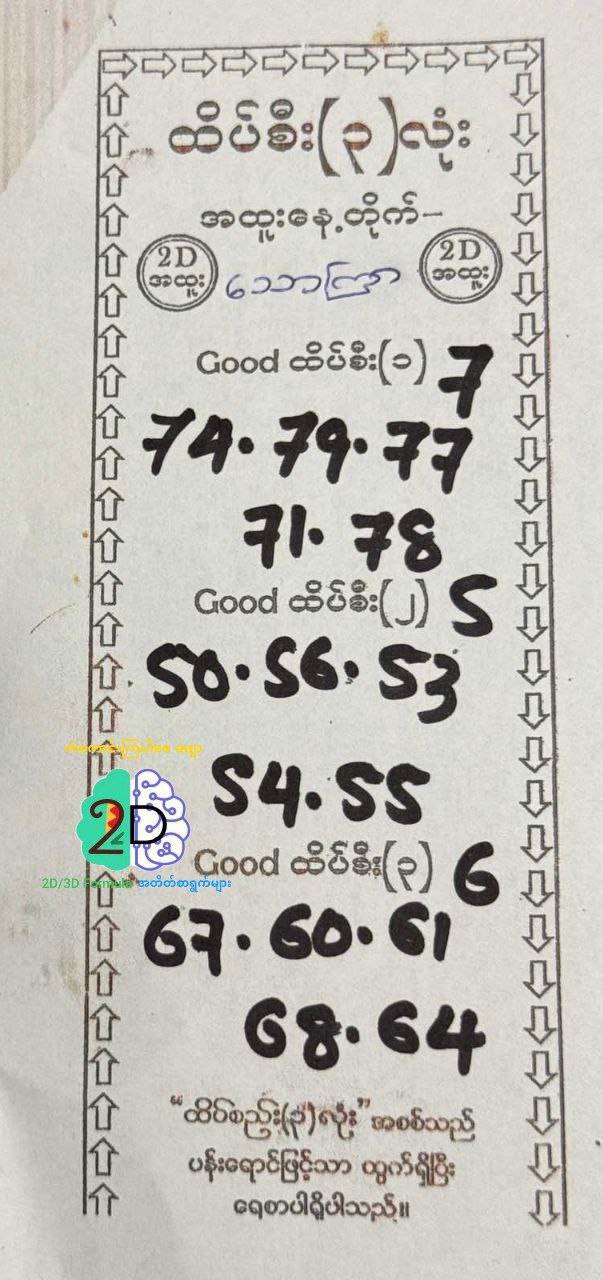 ထိပ်စီး(၃)လုံး
အထူးနေ့တိုက်-
2D
အထူး
သောကြာ
2D
အထူး
Good ထိပ်စီး(၁) 7
74. 79. 77
71. 78
Good ထိပ်စီး(၂) 5
50. 56. 53
54. 55
2D
2D/3D Formula အတိတ်စာရွက်များ
Good ထိပ်စီး(၃) 6
67. 60. 61
68. 64
"ထိပ်စည်း(၃)လုံး" အစစ်သည်
ပန်းရောင်ဖြင့်သာ ထွက်ရှိပြီး
ရေစာပါရှိပါသည်။